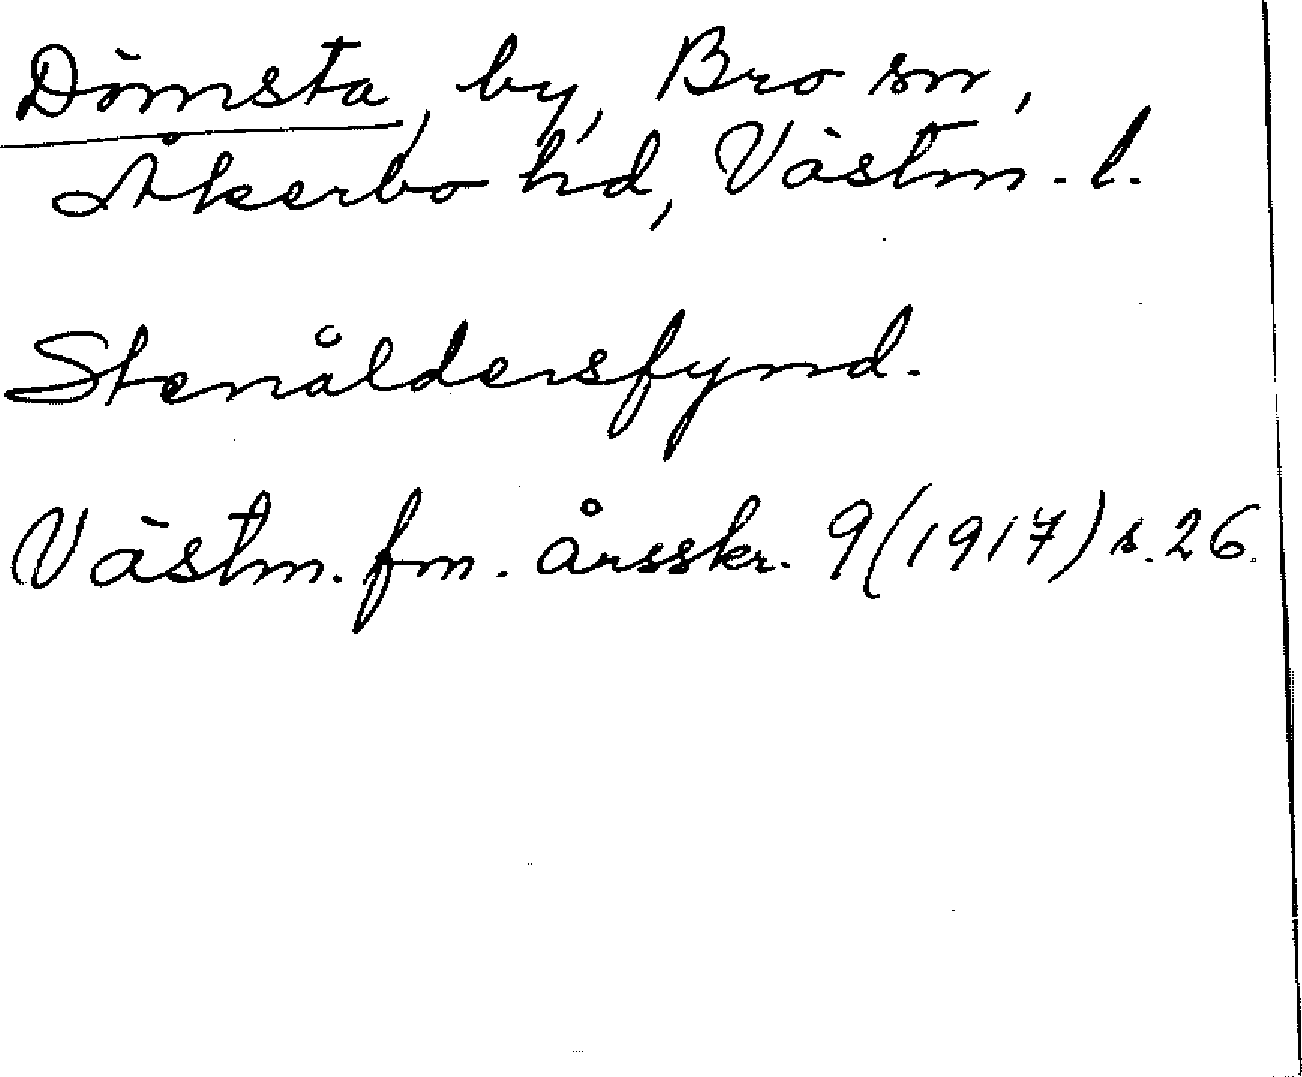 Dömsta, by, Bro sn,
Åkerbo hd, Västm. l.
Stenåldersfynd.
Västm. fm. årsskr. 9 (1917) s. 26.